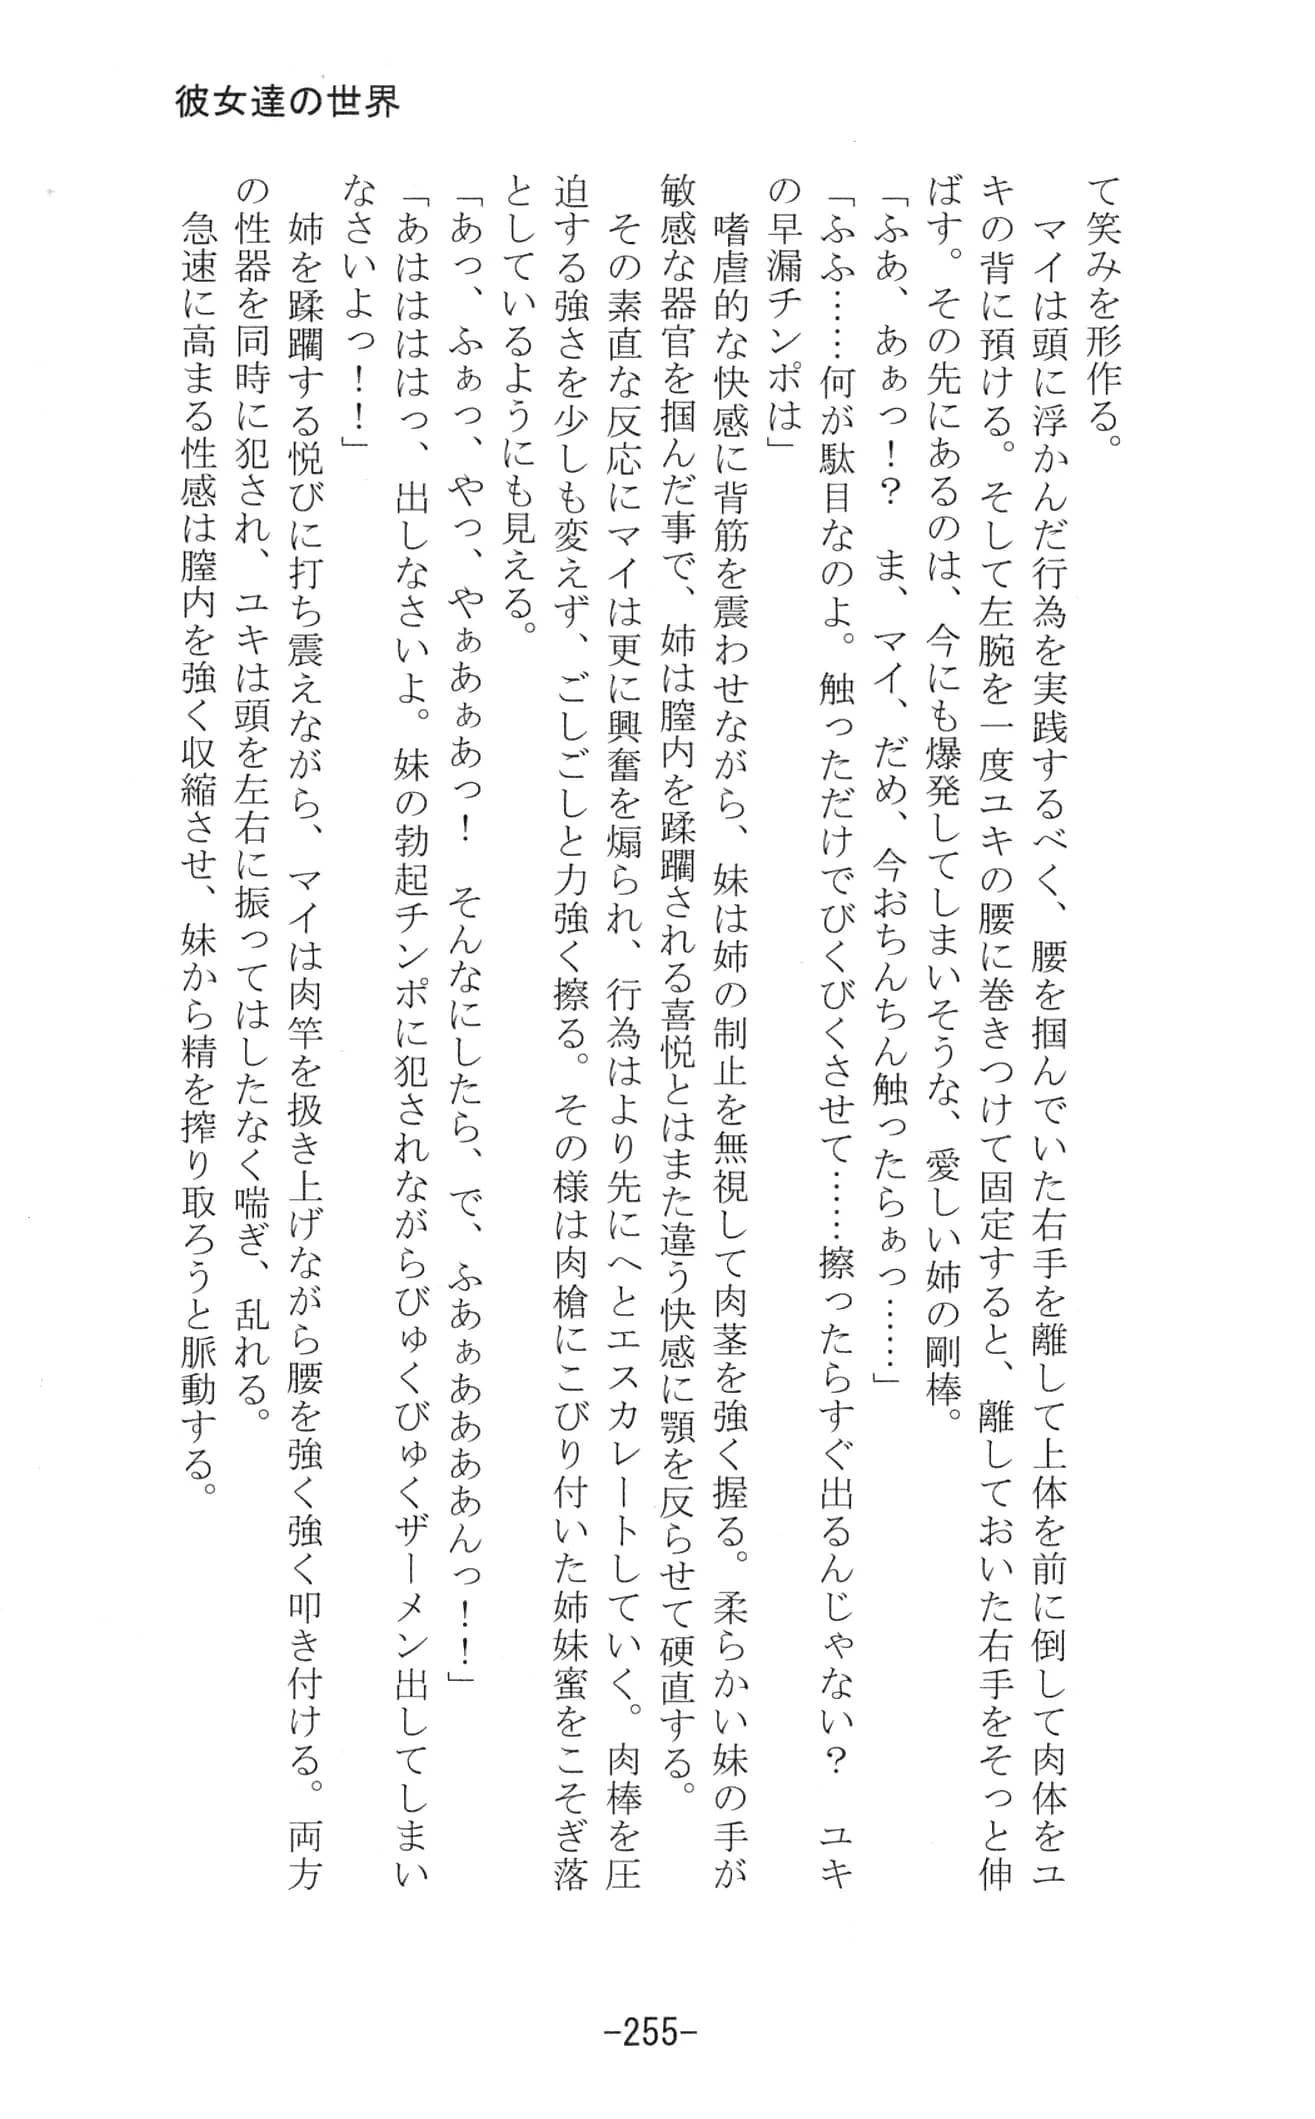 彼女達の世界
て笑みを形作る。
　マイは頭に浮かんだ行為を実践するべく、腰を掴んでいた右手を離して上体を前に倒して肉体をユ
キの背に預ける。そして左腕を一度ユキの腰に巻きつけて固定すると、離しておいた右手をそっと伸
ばす。その先にあるのは、今にも爆発してしまいそうな、愛しい姉の剛棒。
「ふあ、あぁっ！？　ま、マイ、だめ、今おちんちん触ったらぁっ……」
「ふふ……何が駄目なのよ。触っただけでびくびくさせて……擦ったらすぐ出るんじゃない？　ユキ
の早漏チンポは」
　嗜虐的な快感に背筋を震わせながら、妹は姉の制止を無視して肉茎を強く握る。柔らかい妹の手が
敏感な器官を掴んだ事で、姉は膣内を蹂躙される喜悦とはまた違う快感に顎を反らせて硬直する。
　その素直な反応にマイは更に興奮を煽られ、行為はより先にへとエスカレートしていく。肉棒を圧
迫する強さを少しも変えず、ごしごしと力強く擦る。その様は肉槍にこびり付いた姉妹蜜をこそぎ落
としているようにも見える。
「あっ、ふぁっ、やっ、やぁあぁあっ！　そんなにしたら、で、ふあぁああああんっ！！」
「あはははっ、出しなさいよ。妹の勃起チンポに犯されながらびゅくびゅくザーメン出してしまい
なさいよっ！！」
　姉を蹂躙する悦びに打ち震えながら、マイは肉竿を扱き上げながら腰を強く強く叩き付ける。両方
の性器を同時に犯され、ユキは頭を左右に振ってはしたなく喘ぎ、乱れる。
　急速に高まる性感は膣内を強く収縮させ、妹から精を搾り取ろうと脈動する。
-255-